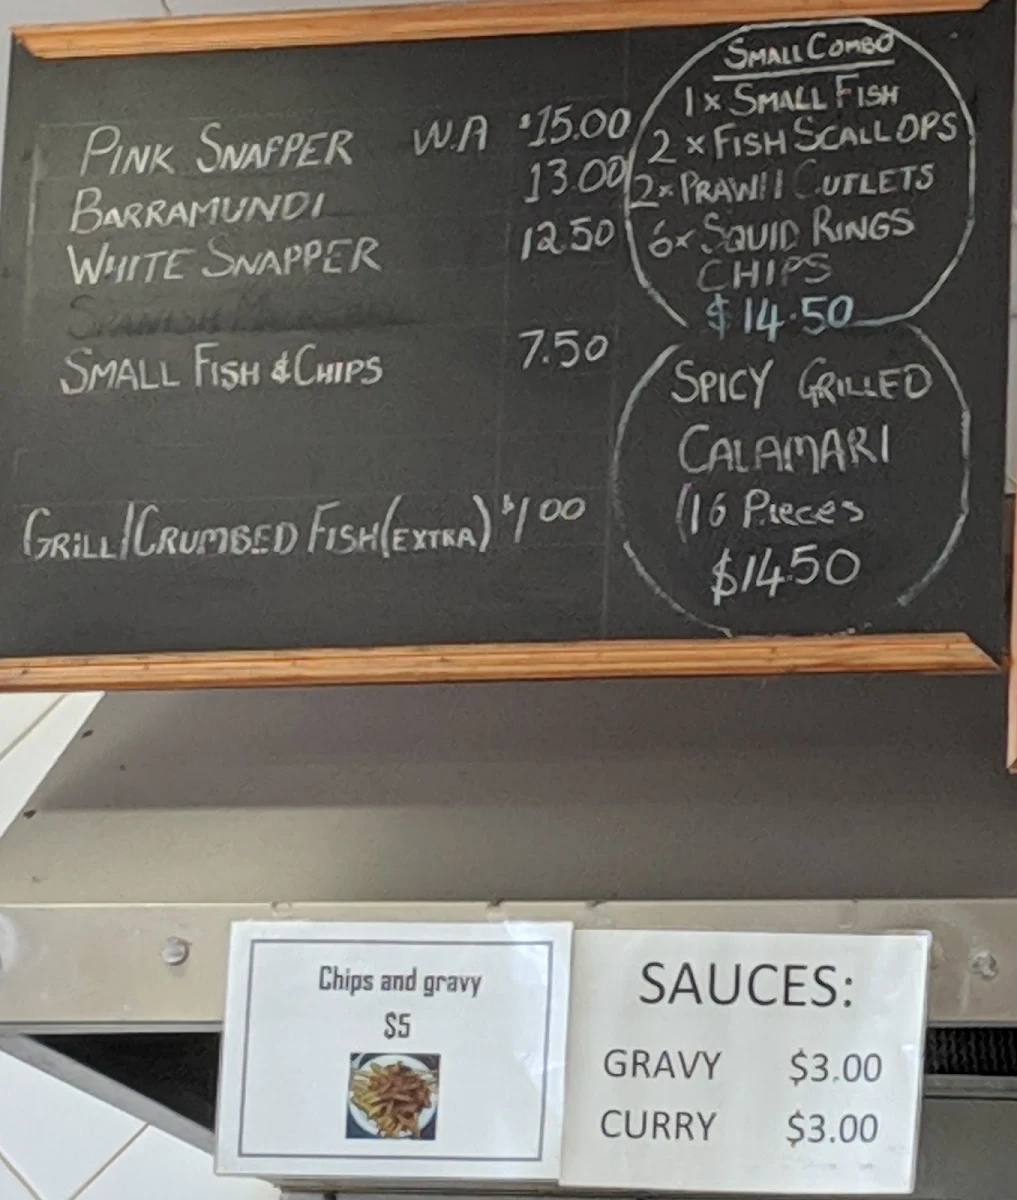 PINK SNAPPER W.A $15.00
BARRAMUNDI 13.00
WHITE SNAPPER 12.50
SPANISH MACKEREL
SMALL FISH & CHIPS 7.50
GRILL/CRUMBED FISH(EXTRA) $1.00
SMALL COMBO
1 x SMALL FISH
2 x FISH SCALLOPS
2 x PRAWN CUTLETS
6 x SQUID RINGS
CHIPS
$14.50
SPICY GRILLED
CALAMARI
(16 Pieces
$14.50
Chips and gravy
$5
SAUCES:
GRAVY $3.00
CURRY $3.00